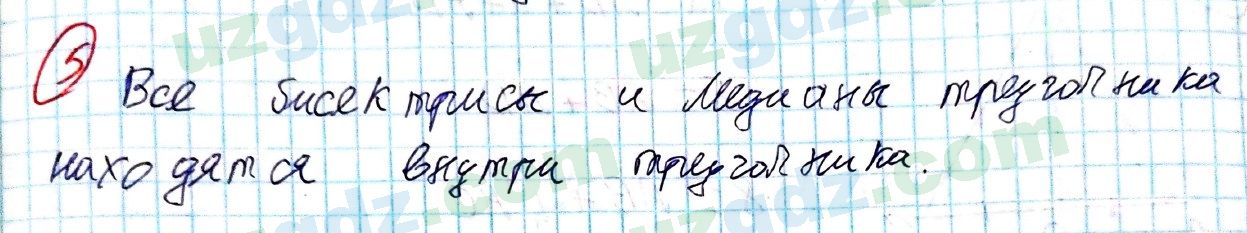 5 Все бисектрисы и медианы треугольника
находятся внутри треугольника.
uzgdz.com